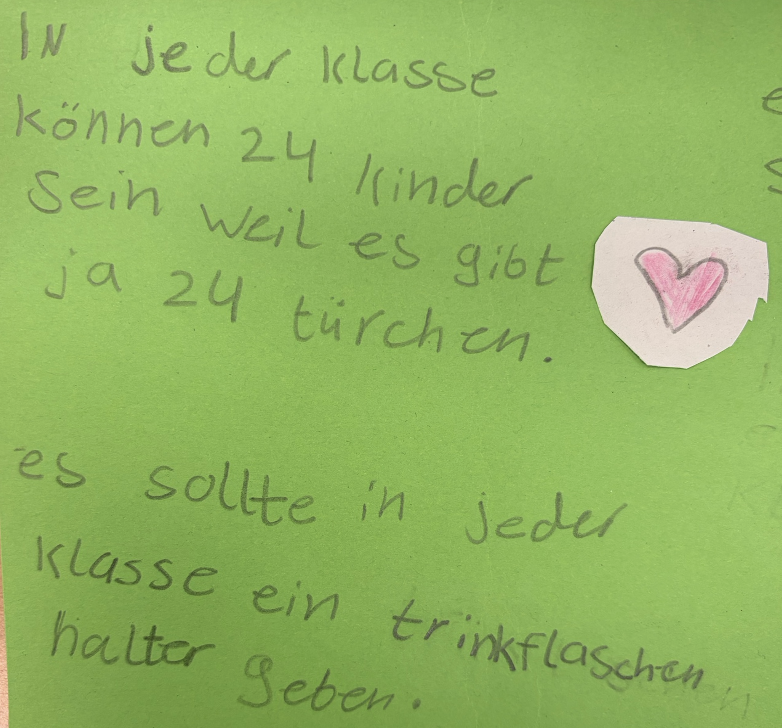 IN jeder klasse
können 24 kinder
Sein weil es gibt
ja 24 türchen.
es sollte in jeder
klasse ein trinkflaschen
halter geben.